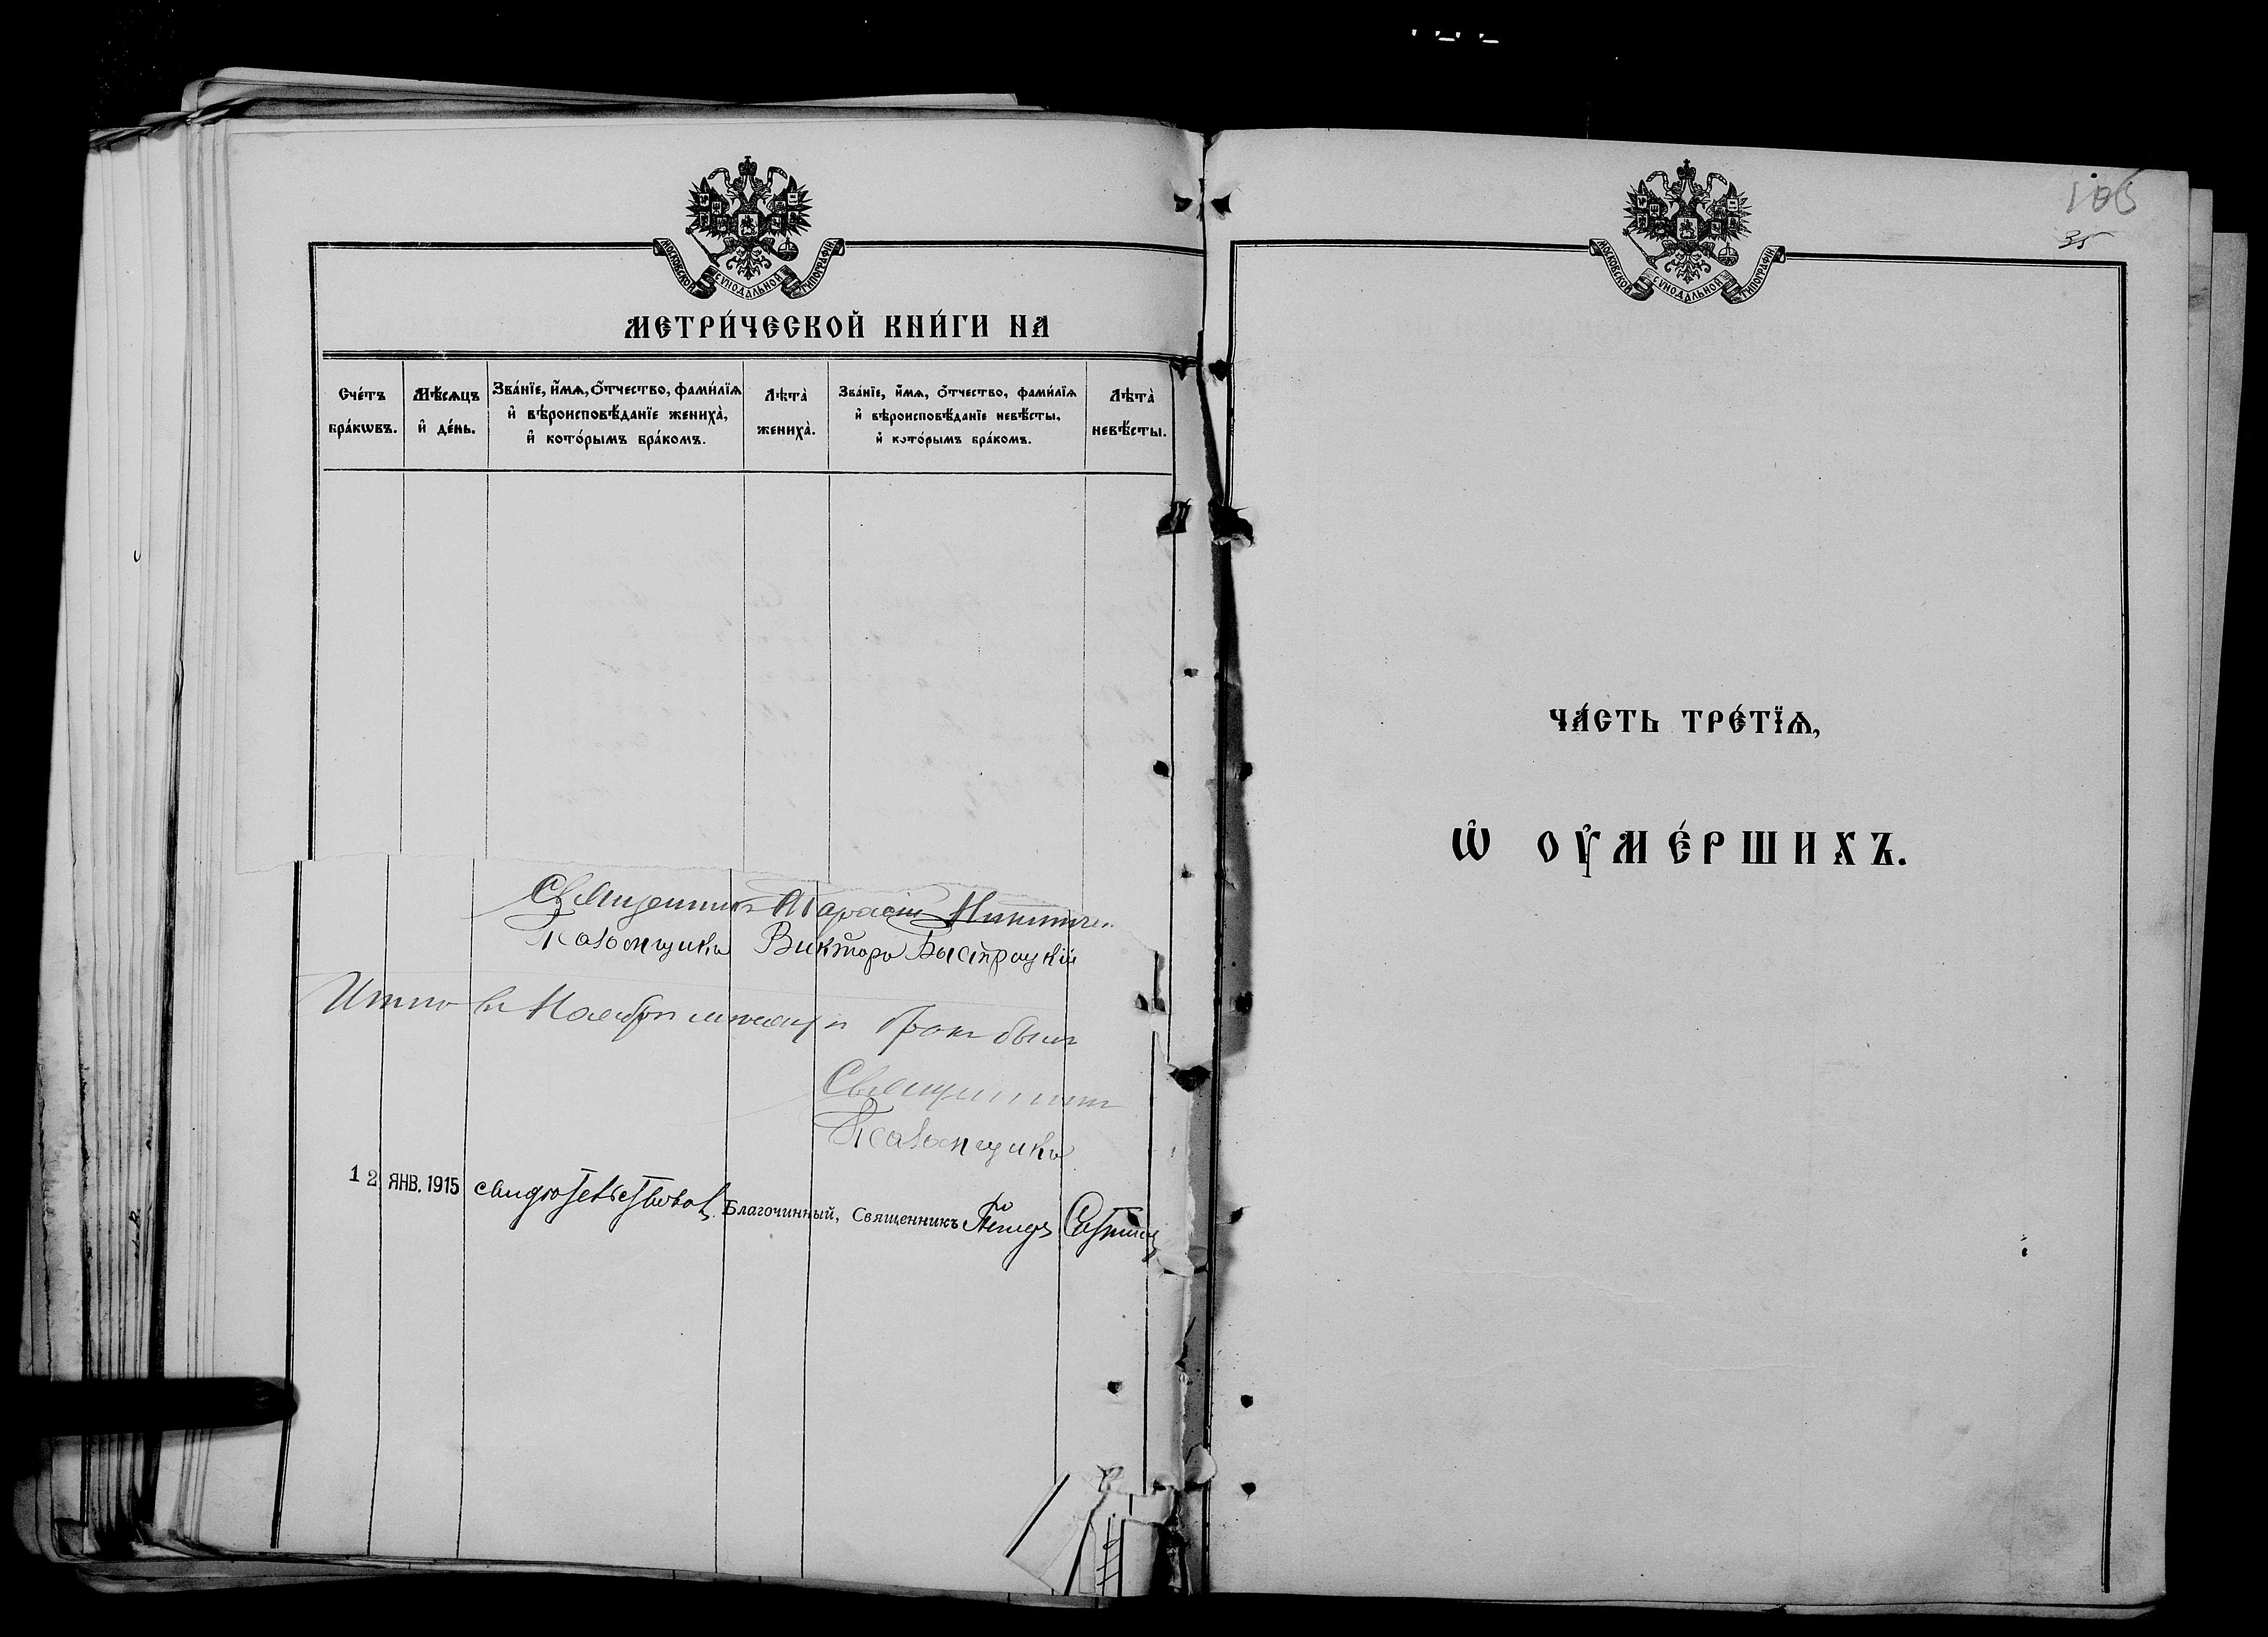 МОСКОВСКОЙ СУНОДАЛЬНОЙ ТИПОГРАФІИ
МЕТРИ́ЧЕСКОЙ КНИ́ГИ НА
Сче́тъ бра́кѡвъ.
Мѣ́сѧцъ и҆ де́нь.
Зва́нїе, и҆́мѧ, ѻ҆́тчество, фами́лїѧ
и҆ вѣроисповѣ́данїе жениха̀,
и҆ кото́рымъ бра́комъ.
Лѣта̀ жениха̀.
Зва́нїе, и҆́мѧ, ѻ҆́тчество, фами́лїѧ
и҆ вѣроисповѣ́данїе невѣ́сты,
и҆ кото́рымъ бра́комъ.
Лѣта̀ невѣ́сты.
Священникъ Тарасій
Викторъ Быстрицкій
Итого въ Ноябрѣ мѣсяцѣ бракъ былъ
Священникъ
12 ЯНВ. 1915 свидѣтельствовалъ Благочинный, Священникъ
МОСКОВСКОЙ СУНОДАЛЬНОЙ ТИПОГРАФІИ
106
35
ЧА́СТЬ ТРЕ́ТЇѦ,
Ѡ҆ ОУ҆МЕ́РШИХЪ.